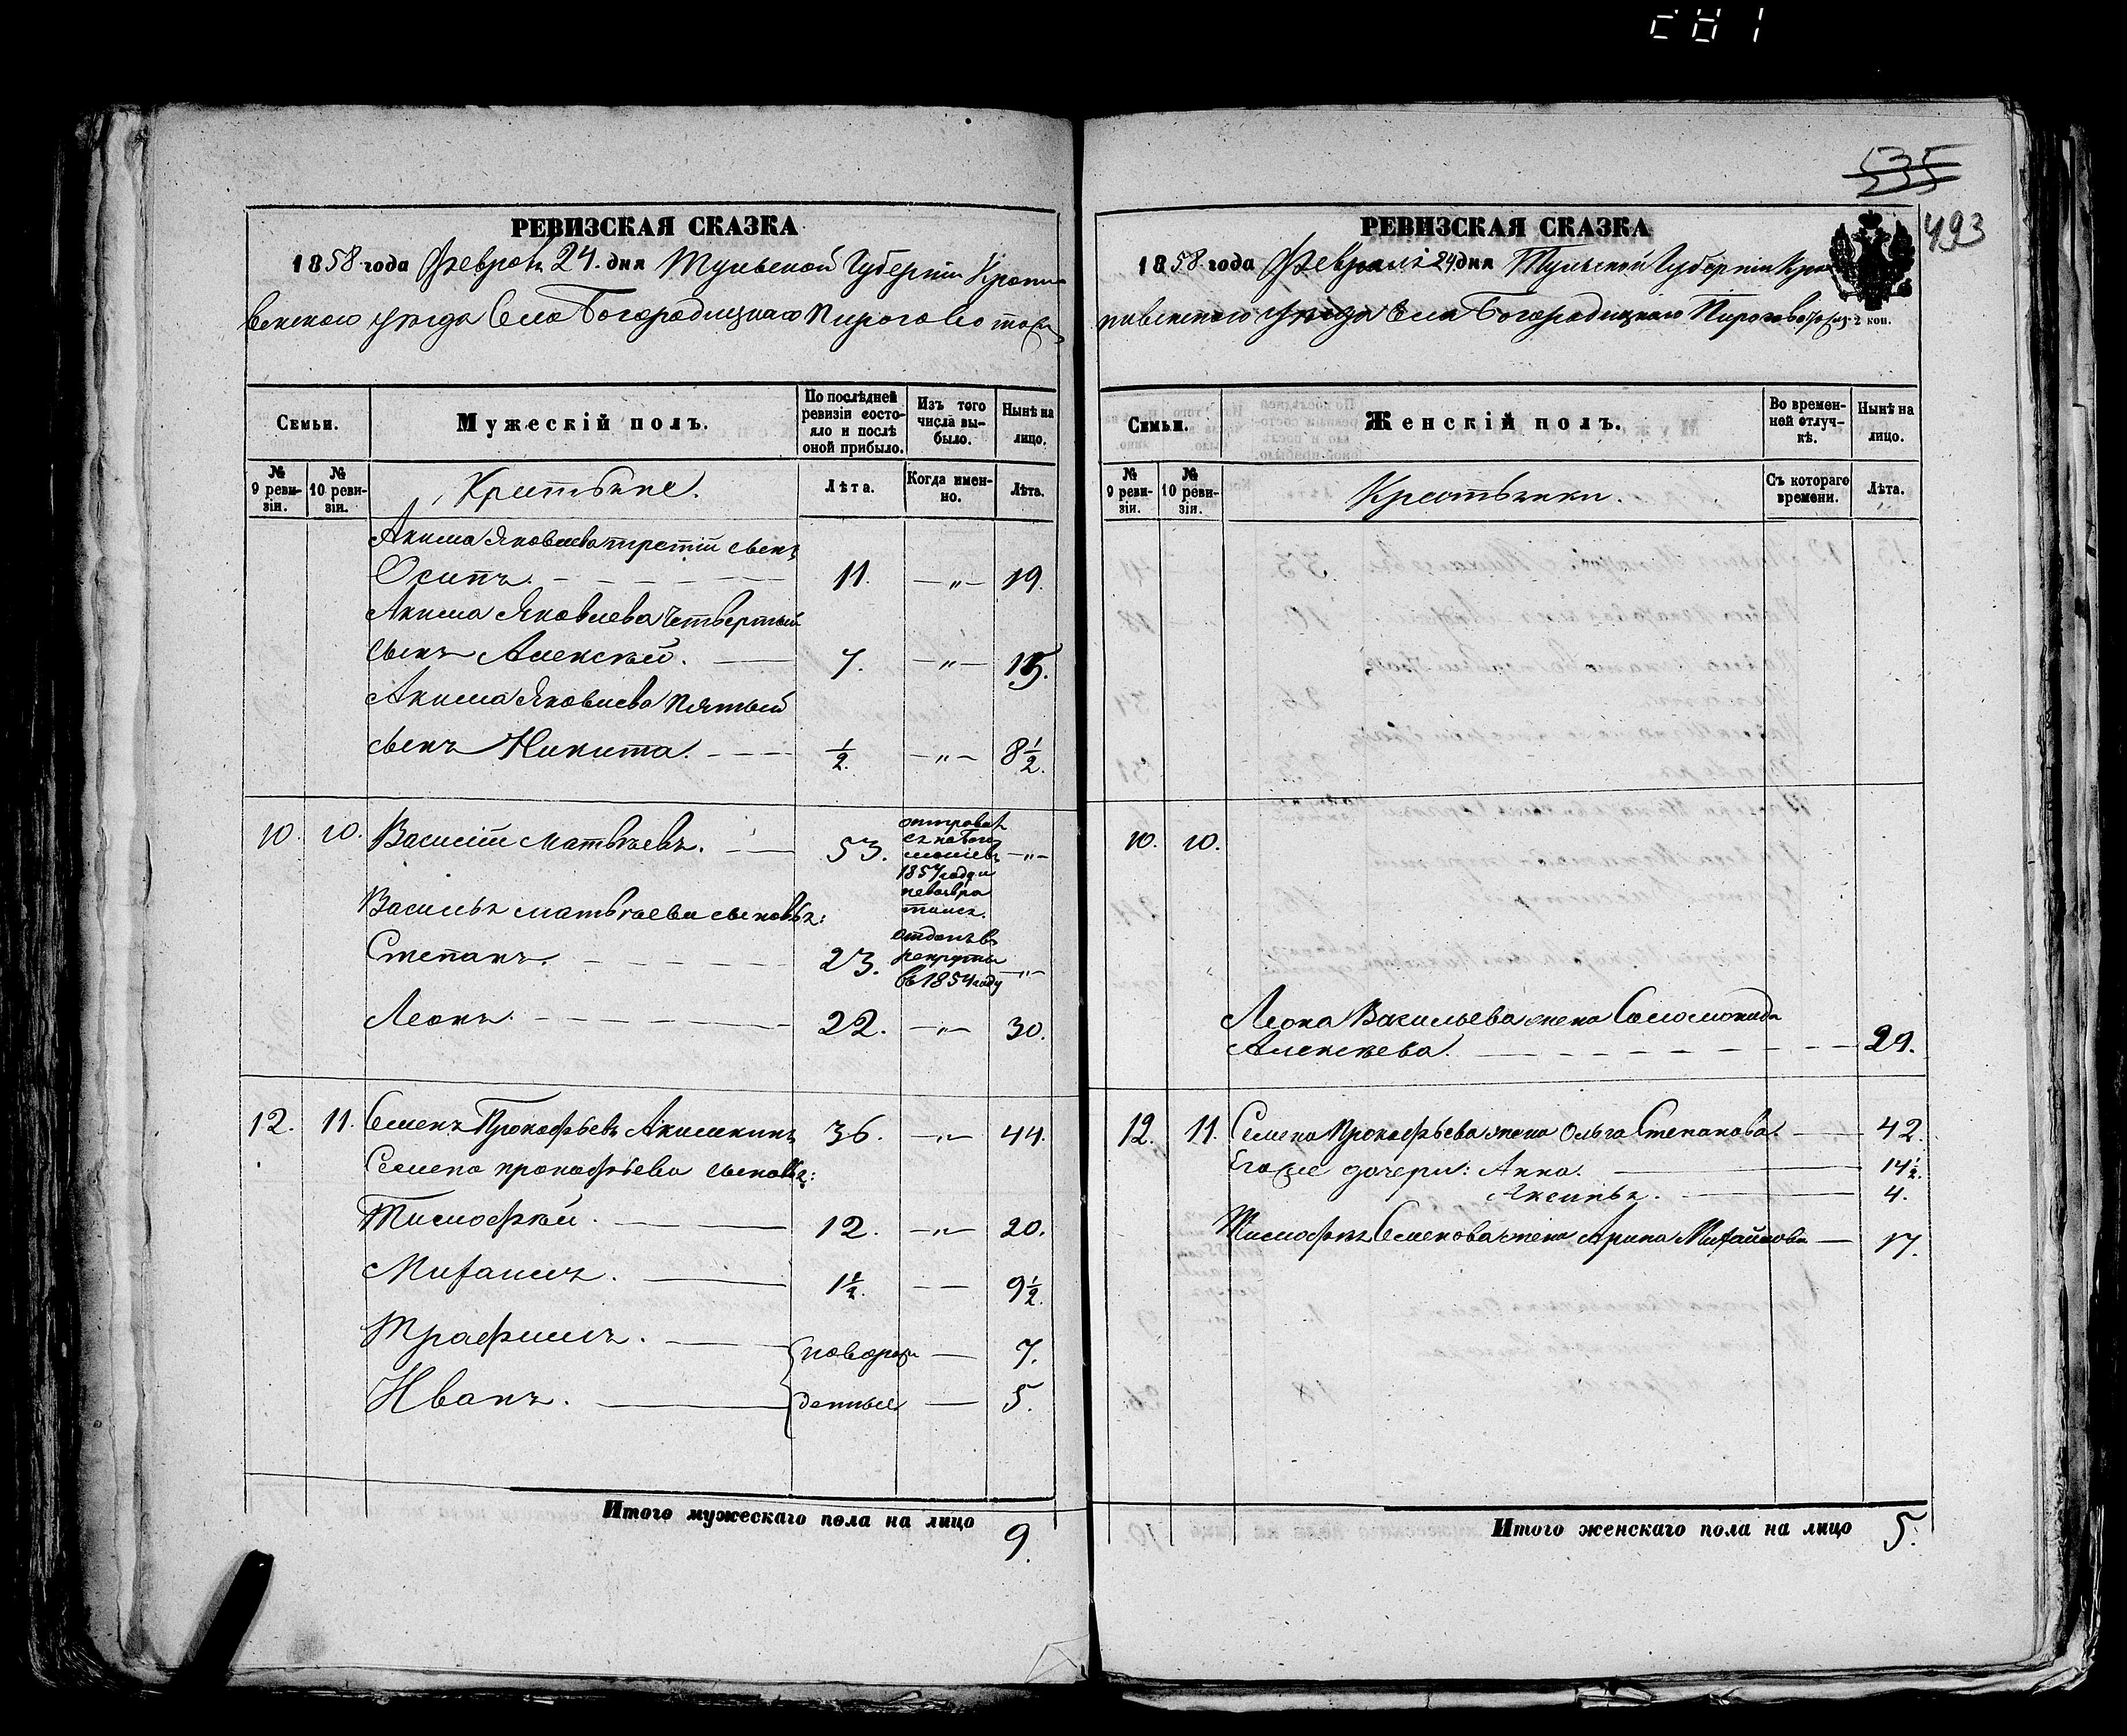 535
493
РЕВИЗСКАЯ СКАЗКА
1858 года Февраля 24. дня Тульской Губерніи Крапи
венского уѣзда Села Богородицкаго Пирогово тожъ
Семьи.
Мужескій полъ.
По послѣдней ревизіи состояло и послѣ оной прибыло.
Изъ того числа выбыло.
Нынѣ на лицо.
№ 9 ревизіи.
№ 10 ревизіи.
Крестьяне.
Лѣта.
Когда именно.
Лѣта.
Акима Яковлева третій сынъ
Осипъ. 11. — „ — 19.
Акима Яковлева четвертый
сынъ Алексѣй. 7. — „ — 15.
Акима Яковлева пятый
сынъ Никита. 1/2. — „ — 8 1/2.
10. 10. Василій Матвѣевъ. 53. — „ —
1857 года и
невозвра
тился.
Василья Матвѣева сыновья:
Степанъ. 23. отданъ въ
рекруты
въ 1854 году — „ —
Леонъ. 22. — „ — 30.
12. 11. Семенъ Прокофьевъ Акимкинъ 36. — „ — 44.
Семена Прокофьева сыновья:
Тимофѣй. 12. — „ — 20.
Михаилъ. 1 1/2. — — 9 1/2.
Трафимъ. новорож — 7.
Иванъ. денные — 5.
Итого мужескаго пола на лицо 9.
РЕВИЗСКАЯ СКАЗКА
1858 года Февраля 24 дня Тульской Губерніи Кра
пивенского уѣзда Села Богородицкаго Пирогово тожъ
2 коп.
Семьи.
Женскій полъ.
Во временной отлучкѣ.
Нынѣ на лицо.
№ 9 ревизіи.
№ 10 ревизіи.
Крестьянки.
Съ котораго времени.
Лѣта.
10. 10.
Леона Васильева жена Соломонида
Алексѣева. 29.
12. 11. Семена Прокофьева жена Ольга Степанова. 42.
Его же дочери: Анна. 14 1/2.
Аксинья. 4.
Тимофея Семенова жена Арина Михайлова 17.
Итого женскаго пола на лицо 5.